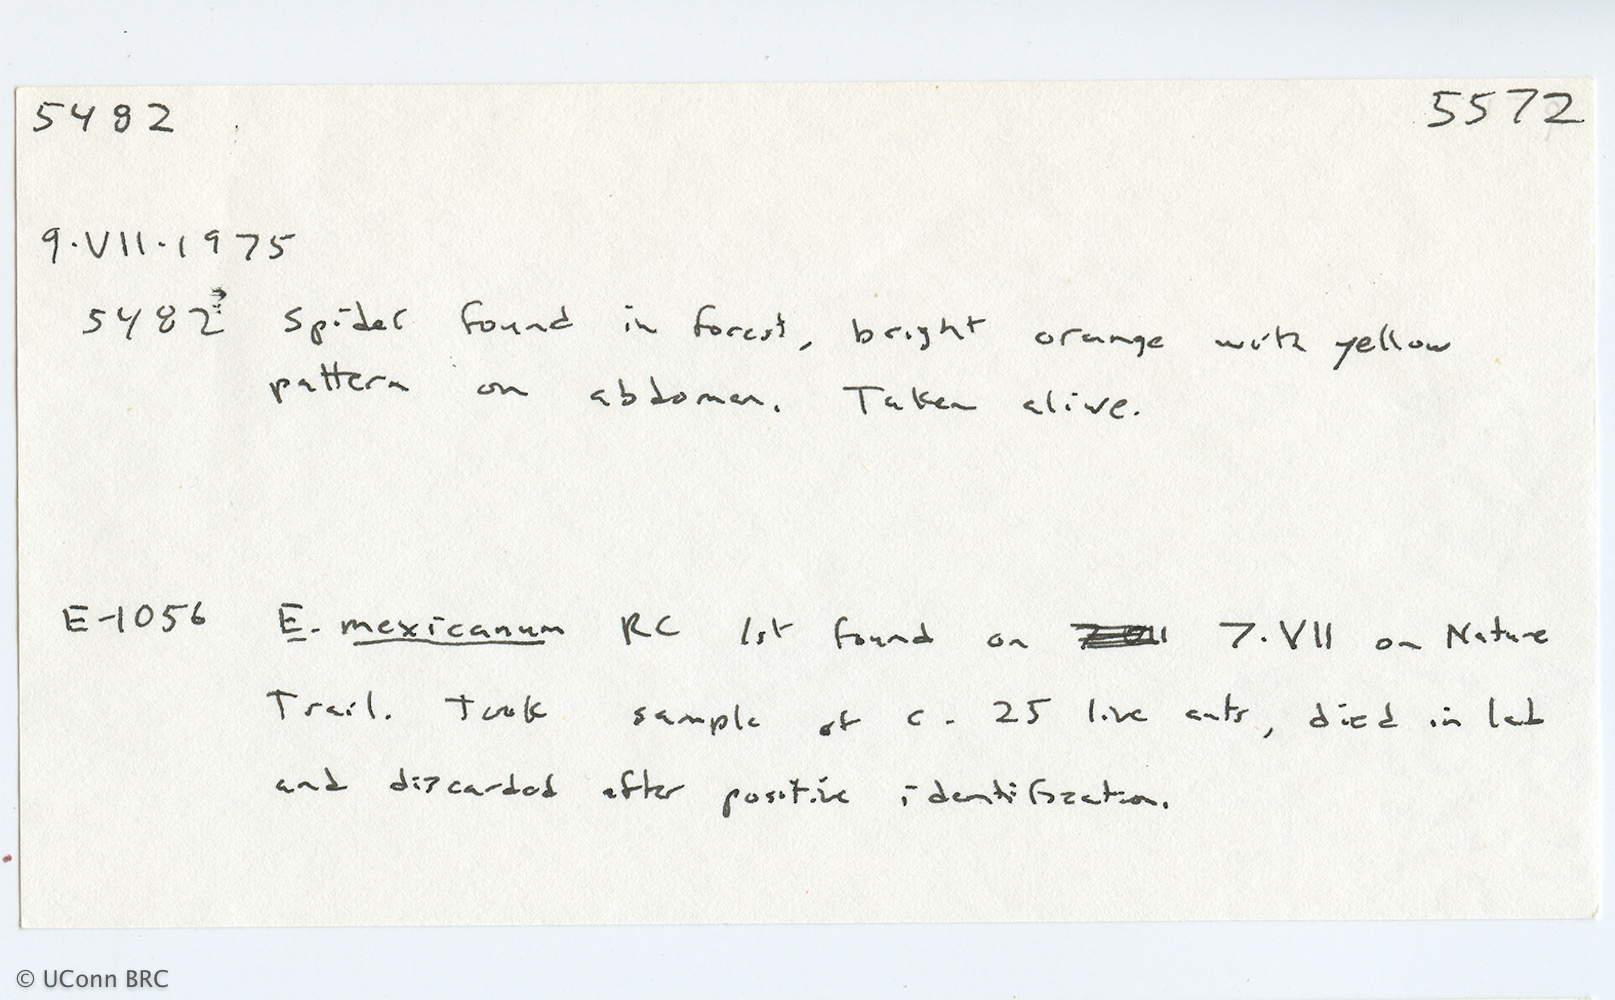 5482 5572
9·VII·1975
5482? Spider found in forest, bright orange with yellow
pattern on abdomen. Taken alive.
E-1056 E. mexicanum RC 1st found on 7·VII on Nature
Trail. Took sample of c. 25 live ants, died in lab
and discarded after positive identification.
© UConn BRC